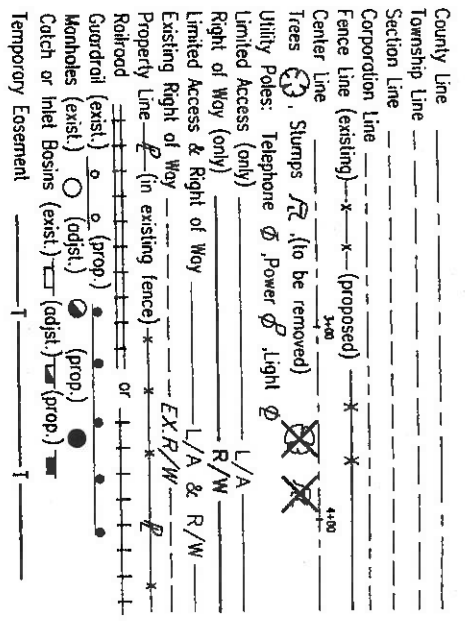 County Line
Township Line
Section Line
Corporation Line
Fence Line (existing) x x (proposed) x x
Center Line 3+00 4+00
Trees , Stumps , (to be removed)
Utility Poles: Telephone , Power , Light
Limited Access (only) L/A
Right of Way (only) R/W
Limited Access & Right of Way L/A & R/W
Existing Right of Way EX.R/W
Property Line PL (in existing fence) x x x PL x
Railroad or
Guardrail (exist.) (prop.)
Manholes (exist.) (adjst.) (prop.)
Catch or Inlet Basins (exist.) (adjst.) (prop.)
Temporary Easement T T